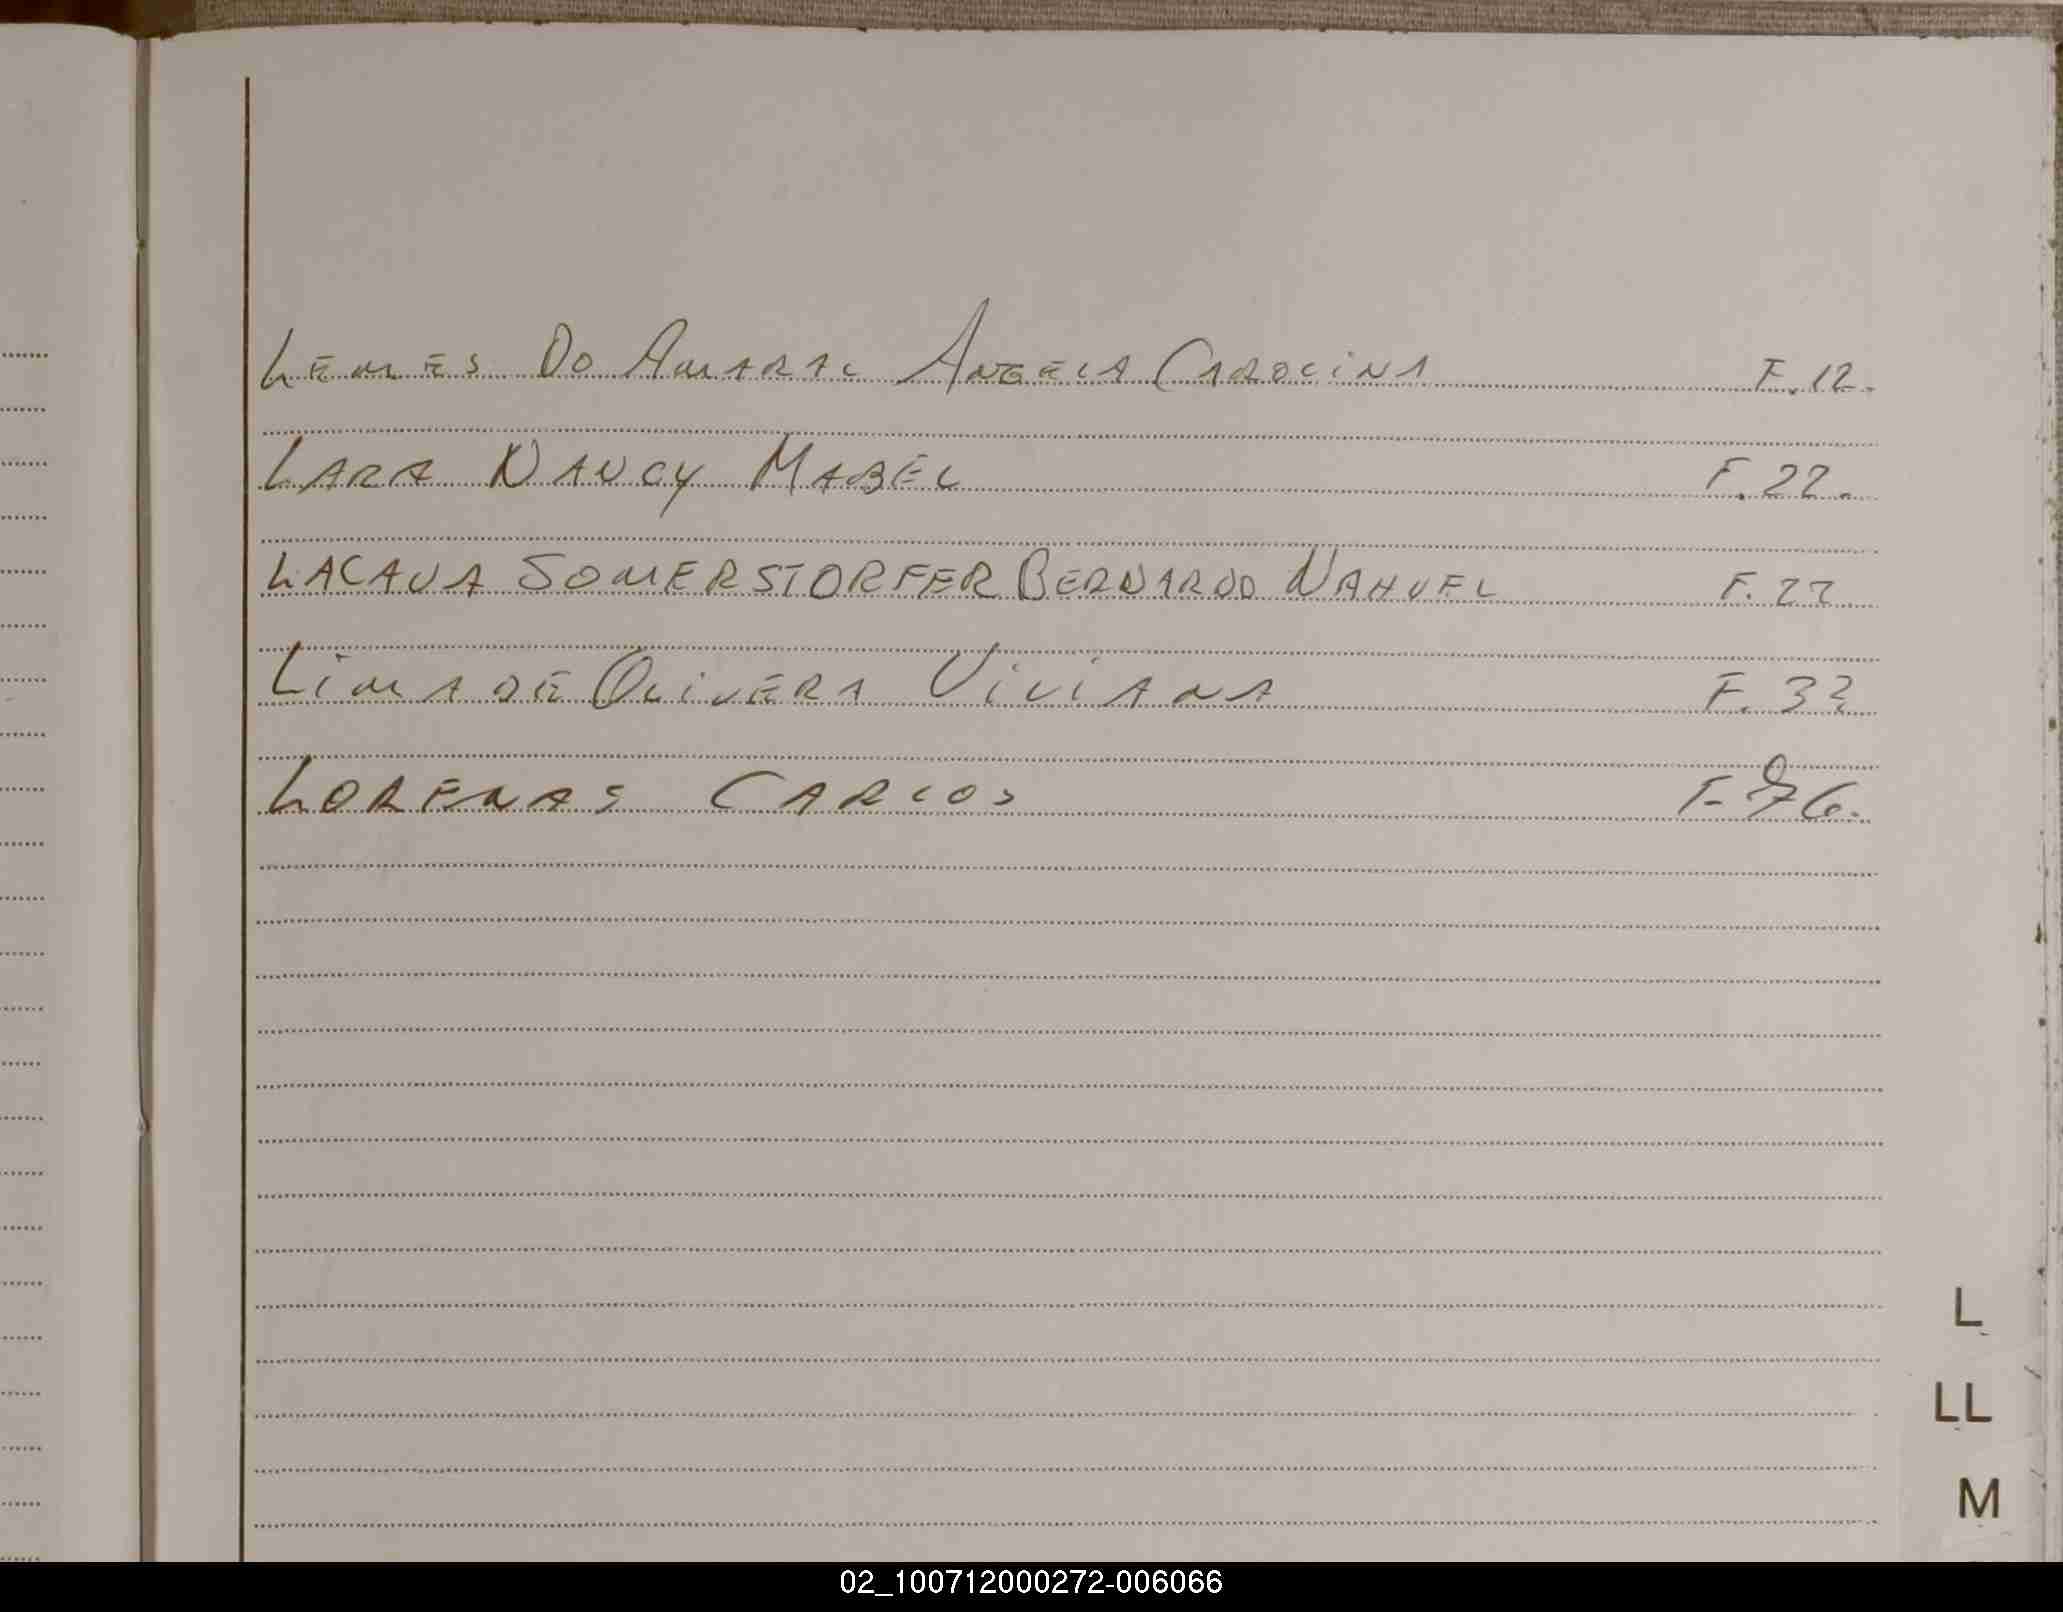 LEMES DO AMARAL ANGELA CAROLINA F.12.
LARA NANCY MABEL F.22.
LACAVA SOMERSTORFER BERNARDO NAHUEL F.22
LIMA DE OLIVERA VIVIANA F.32
LORENAS CARLOS
L
LL
M
02_100712000272-006066